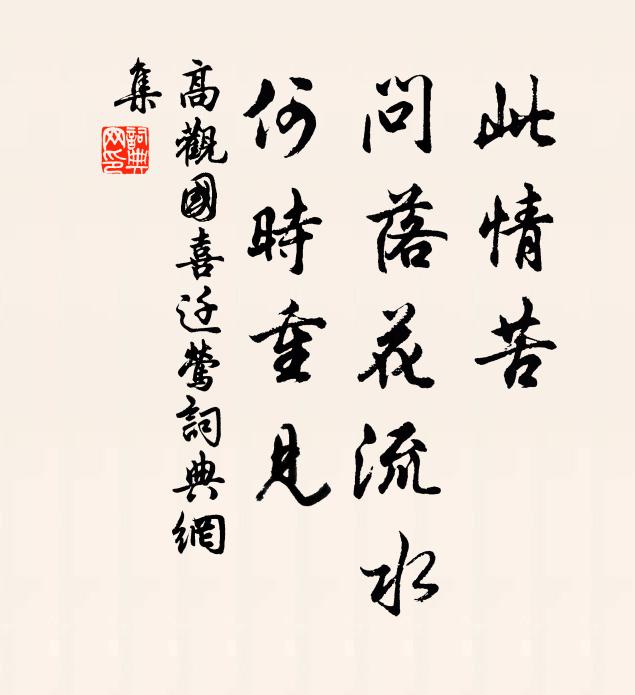 此情苦
問落花流水
何時重見
高觀國喜迁鶯詞典網
集
詞典
网印